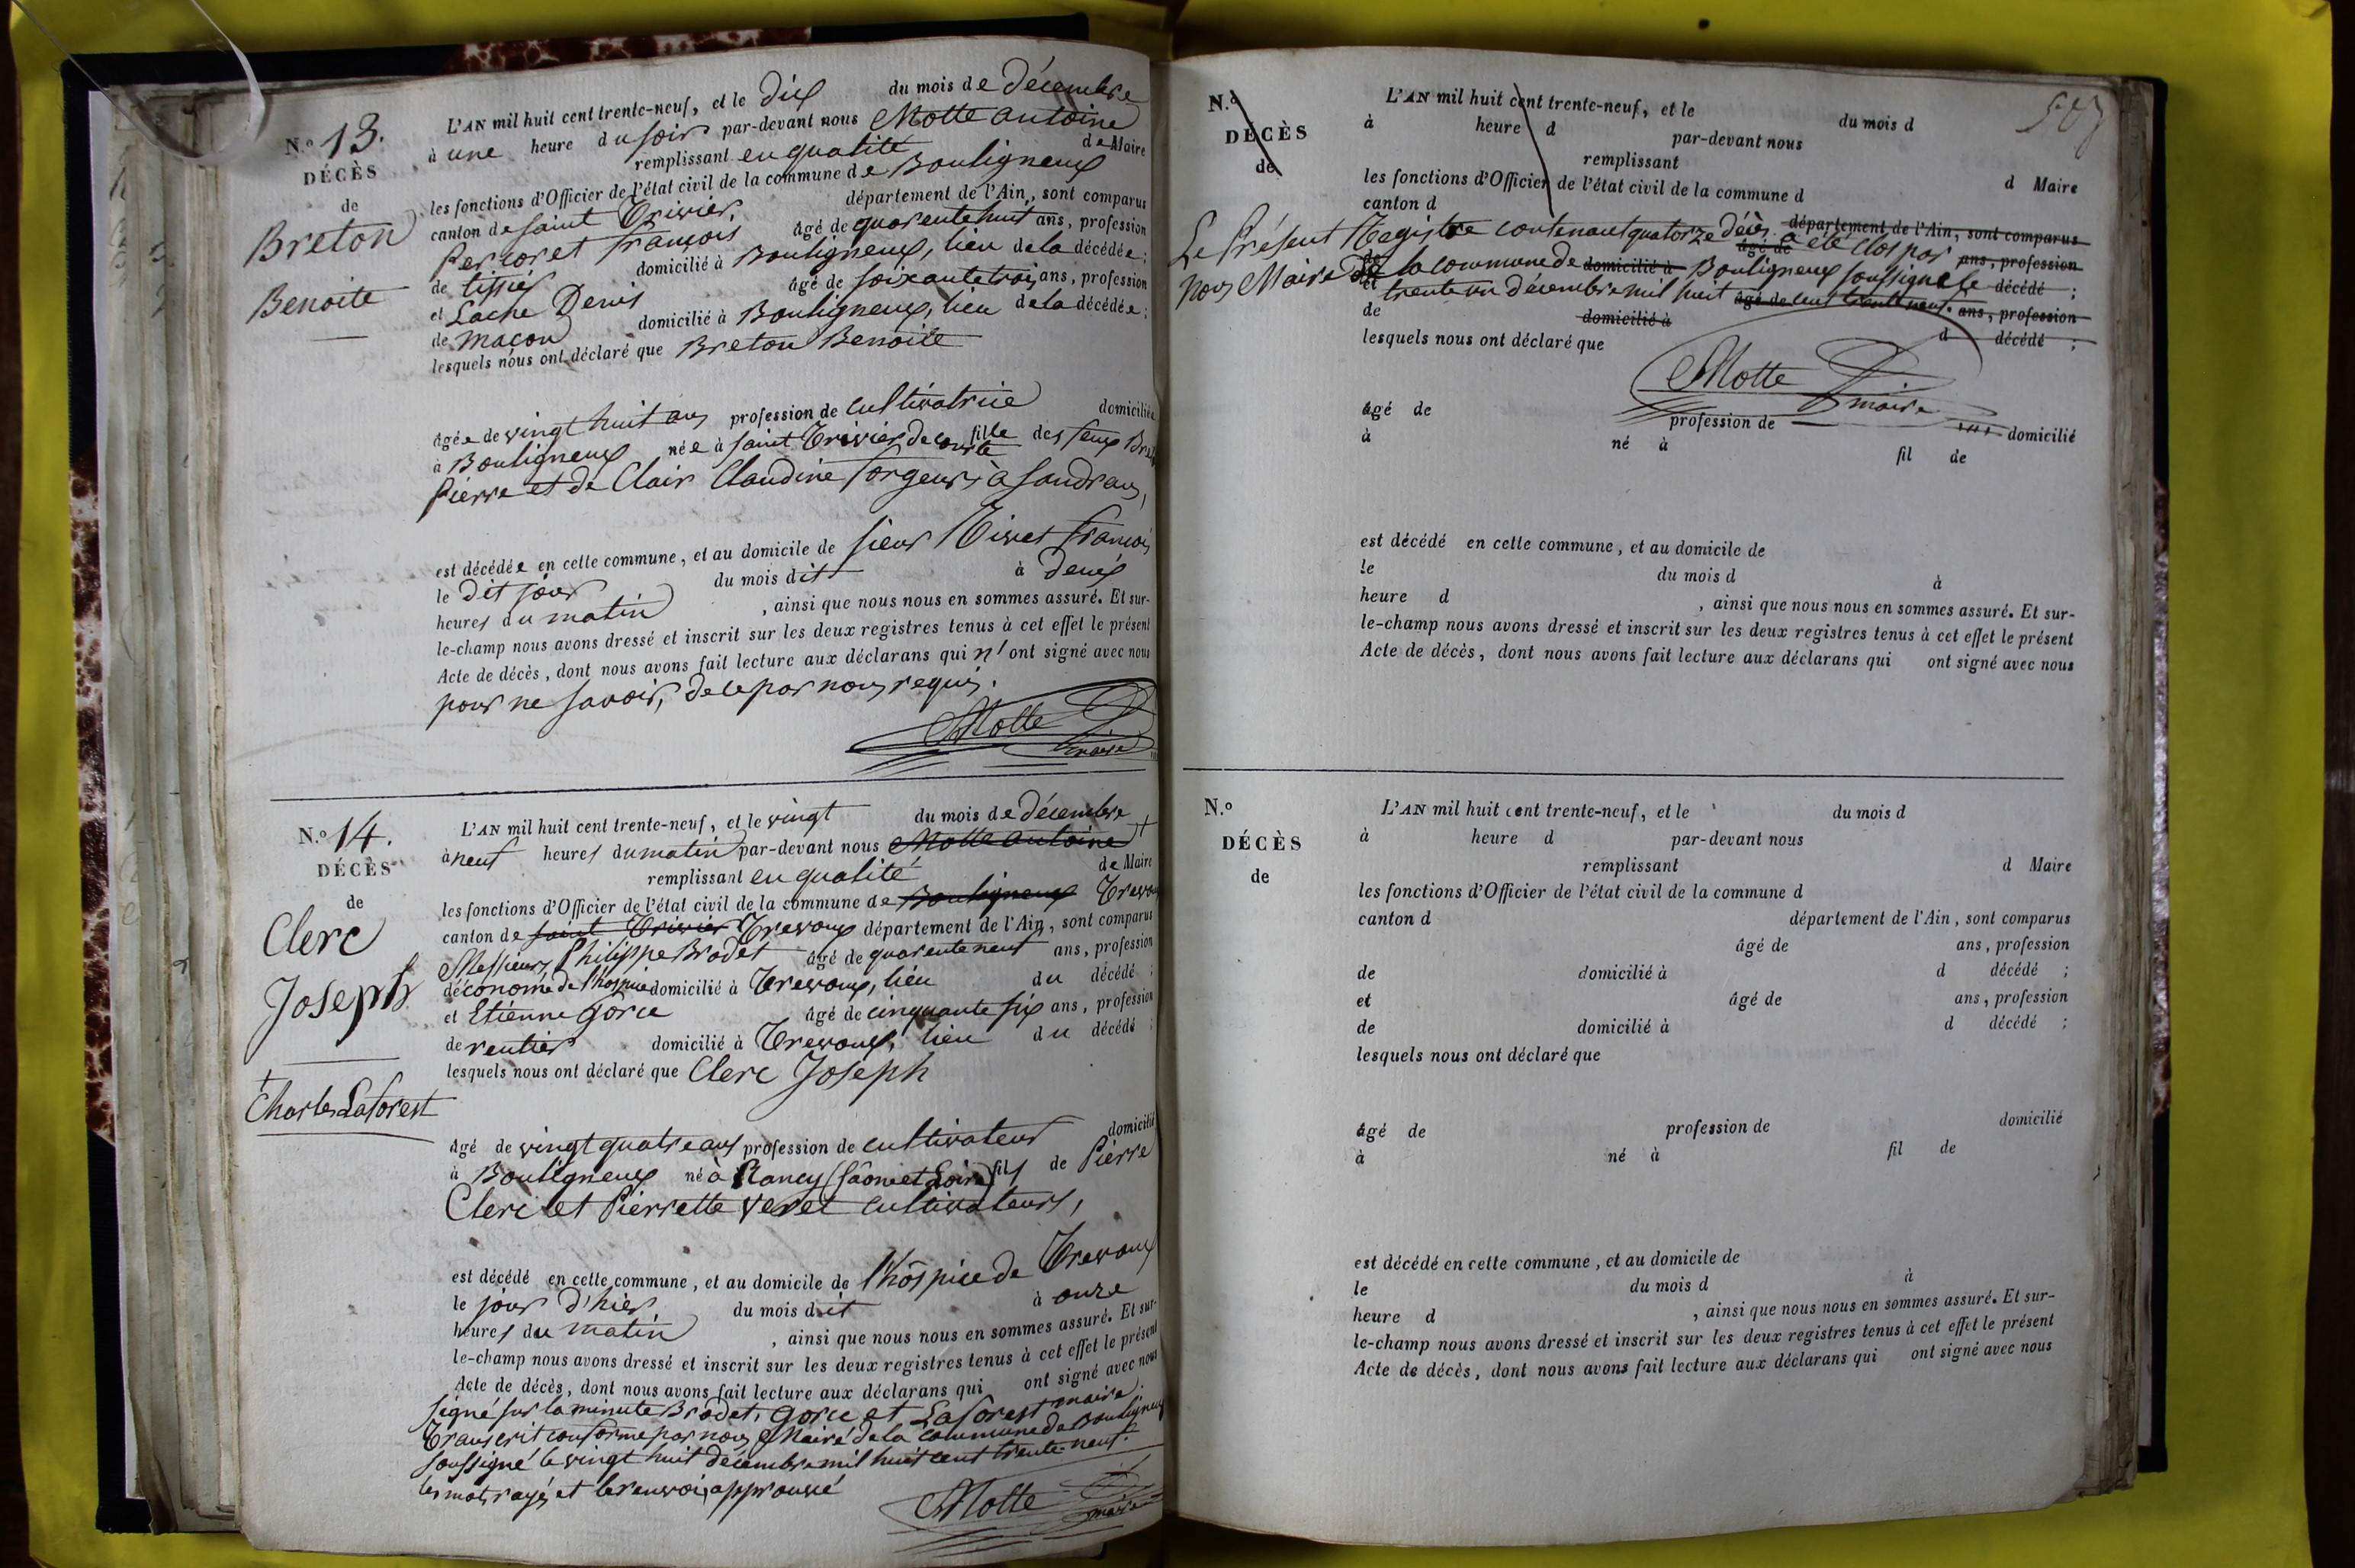 N.º 13.
DÉCÈS
de
Breton
Benoite
L'AN mil huit cent trente-neuf, et le dix du mois de décembre
à une heure du soir par-devant nous Motte antoine
remplissant en qualité de Maire
les fonctions d'Officier de l'état civil de la commune de Bouligneux
canton de saint Trivier, département de l'Ain, sont comparus
Percoret françois âgé de quarente huit ans, profession
de tissier domicilié à Bouligneux, lieu de la décédée;
et Laché Denis âgé de soixante trois ans, profession
de maçon domicilié à Bouligneux, lieu de la décédée;
lesquels nous ont déclaré que Breton Benoite
âgée de vingt huit ans profession de cultivatrice domiciliée
à Bouligneux née à saint Trivier de courte fille des feux Breton
Pierre et de Clair Claudine forgeurs à Sandrans,
est décédée en cette commune, et au domicile de sieur Rivet françois
le dit jour du mois dit à deux
heures du matin, ainsi que nous nous en sommes assuré. Et sur-
le-champ nous avons dressé et inscrit sur les deux registres tenus à cet effet le présent
Acte de décès, dont nous avons fait lecture aux déclarans qui n'ont signé avec nous
pour ne savoir, de ce par nous requis.
Motte
maire
N.º 14.
DÉCÈS
de
Clerc
Joseph
Charles Laforest
L'AN mil huit cent trente-neuf, et le vingt du mois de décembre
à neuf heures du matin par-devant nous Motte antoine
remplissant en qualité de Maire
les fonctions d'Officier de l'état civil de la commune de Bouligneux Trevoux
canton de saint Trivier Trevoux département de l'Ain, sont comparus
Messieurs Philippe Brodet âgé de quarente neuf ans, profession
d'économe de l'hospice domicilié à Trevoux, lieu du décédé;
et Etienne Gorce âgé de cinquante six ans, profession
de rentier domicilié à Trevoux, lieu du décédé;
lesquels nous ont déclaré que Clerc Joseph
âgé de vingt quatre ans profession de cultivateur domicilié
à Bouligneux né à Rancy (Saône et Loire) fils de Pierre
Clerc et Pierrette Veret cultivateurs,
est décédé en cette commune, et au domicile de l'hôspice de Trevoux
le jour d'hier, du mois dit à onze
heures du matin, ainsi que nous nous en sommes assuré. Et sur-
le-champ nous avons dressé et inscrit sur les deux registres tenus à cet effet le présent
Acte de décès, dont nous avons fait lecture aux déclarans qui ont signé avec nous
signé sur la minute Brodet, Gorce et Laforest maire.
Transcrit conforme par nous Maire de la commune de Bouligneux
soussigné le vingt huit décembre mil huit cent trente-neuf.
les mots rayés et le renvoi approuvé
Motte
maire
N.º
DÉCÈS
de
L'AN mil huit cent trente-neuf, et le du mois d
à heure d par-devant nous
remplissant d Maire
les fonctions d'Officier de l'état civil de la commune d
canton d département de l'Ain, sont comparus
Le Présent Registre contenant quatorze décès a été clos par
âgé de ans, profession
nous Maire de la commune de Bouligneux soussigné le
domicilié à décédé ;
trente un décembre mil huit cent trente neuf.
et âgé de ans, profession
de domicilié à d décédé ;
lesquels nous ont déclaré que
Motte
maire
âgé de profession de domicilié
à né à fil de
est décédé en cette commune, et au domicile de
le du mois d à
heure d , ainsi que nous nous en sommes assuré. Et sur-
le-champ nous avons dressé et inscrit sur les deux registres tenus à cet effet le présent
Acte de décès, dont nous avons fait lecture aux déclarans qui ont signé avec nous
N.º
DÉCÈS
de
L'AN mil huit cent trente-neuf, et le du mois d
à heure d par-devant nous
remplissant d Maire
les fonctions d'Officier de l'état civil de la commune d
canton d département de l'Ain, sont comparus
âgé de ans, profession
de domicilié à d décédé ;
et âgé de ans, profession
de domicilié à d décédé ;
lesquels nous ont déclaré que
âgé de profession de domicilié
à né à fil de
est décédé en cette commune, et au domicile de
le du mois d à
heure d , ainsi que nous nous en sommes assuré. Et sur-
le-champ nous avons dressé et inscrit sur les deux registres tenus à cet effet le présent
Acte de décès, dont nous avons fait lecture aux déclarans qui ont signé avec nous